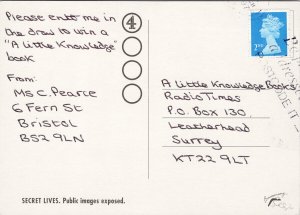 Please enter me in
the draw to win a
"A Little Knowledge"
book
From:
Ms C. Pearce
6 Fern St
Bristol
BS2 9LN
4
A Little Knowledge Books
Radio Times
P.O. Box 130
Leatherhead
Surrey
KT22 9LT
SECRET LIVES. Public images exposed.